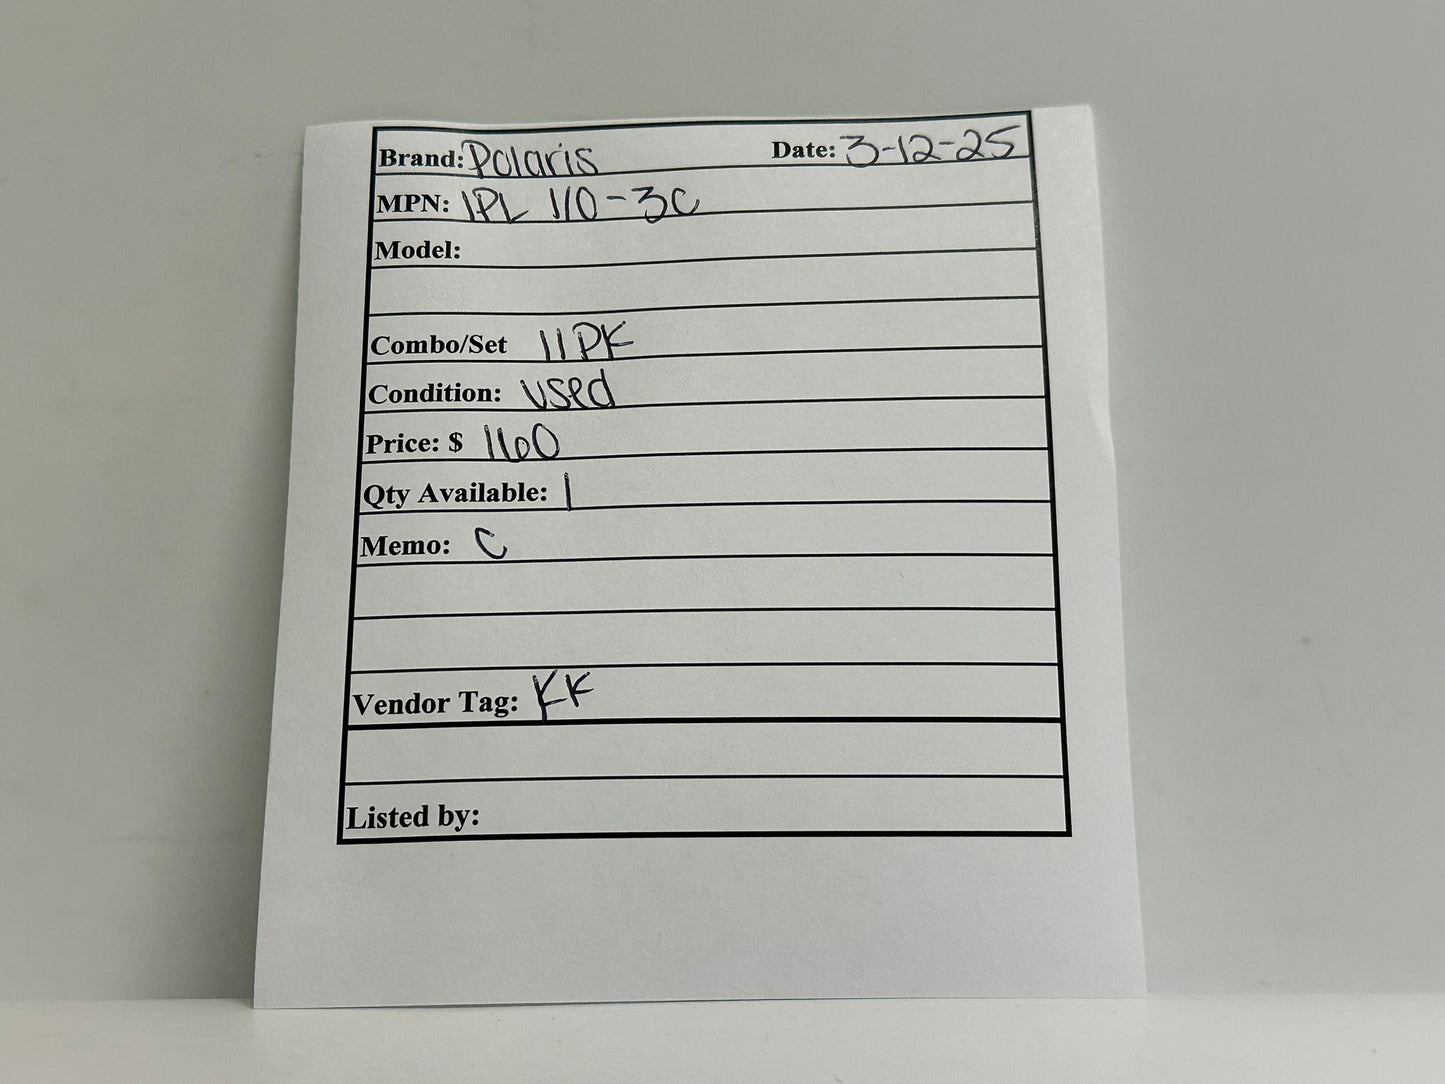 Brand: Polaris Date: 3-12-25
MPN: IPL 110-3C
Model:
Combo/Set 11PK
Condition: used
Price: $ 1160
Qty Available: 1
Memo: C
Vendor Tag: KK
Listed by: